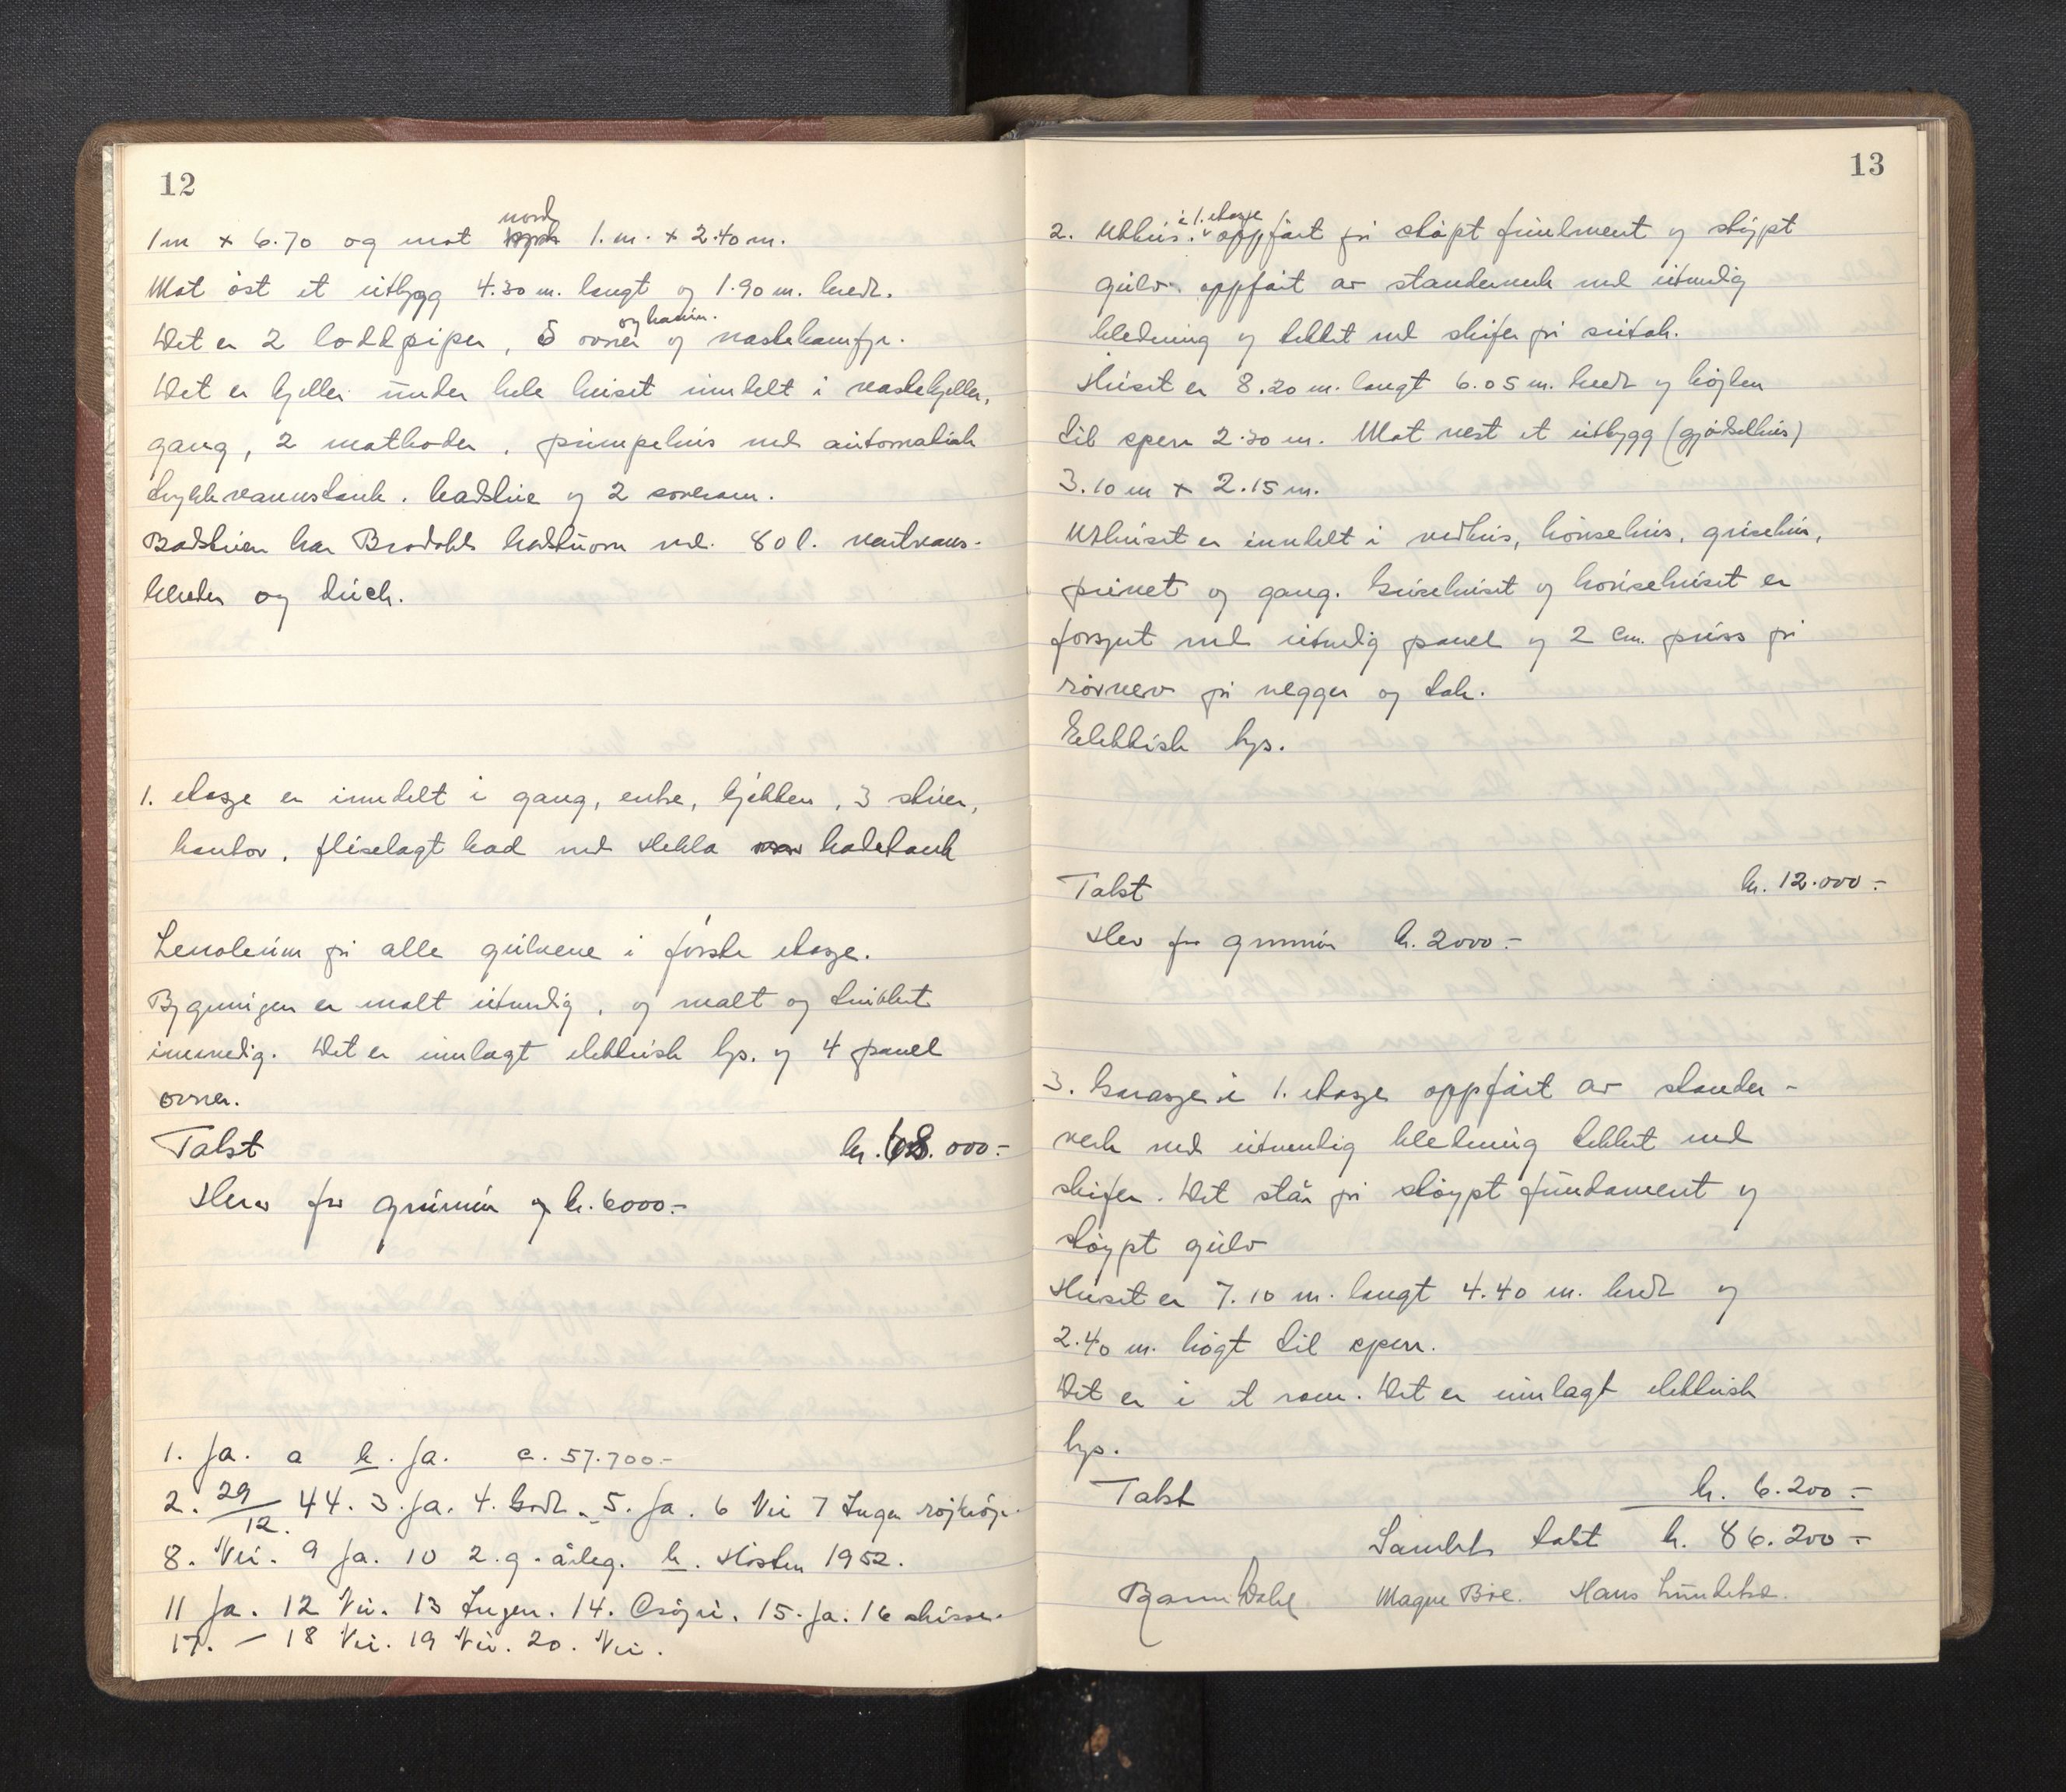 12
1m x 6.70 og mot nord 1.m. x 2.40 m.
Mot öst et utbygg 4.30 m. langt og 1.90 m. bredt.
Det er 2 loddpiper, 5 ovner og kamin. og vaskekomfyr.
Det er kjeller under hele huset inndelt i vaskekjeller,
gang, 2 matboder, pumpehus med automatisk
trykkvannstank. badstue og 2 soverom.
Badstuen har Brodahls badstuovn med. 80 l. vartvans-
bereder og dusch.
1. etasje er inndelt i gang, entre, kjökken, 3 stuer,
kontor, fliselagt bad med Hekla badetank
Lenoleum på alle gulvene i förste etasje.
Bygningen er malt utvendig, og malt og trukket
innvendig. Det er innlagt elektrisk lys. og 4 panel
ovner.
Takst kr. 68.000.-
Herav for grunmur kr. 6000.-
1. Ja. a b. Ja. c. 57.700.-
2. 29/12. 44. 3. Ja. 4. Godt. 5. Ja. 6 Nei 7 Ingen
8. Nei. 9 Ja. 10 2. g. årleg. b. Hösten 1952.
11 Ja. 12 Nei. 13 Ingen. 14. 15. Ja. 16 skisse.
17. - 18 Nei. 19 Nei. 20. Nei.
13
2. Uthus. i 1. etasje oppfört på stöpt fundment og stöypt
gulv. oppfört av standerverk med utvendig
kledning og tekket med skifer på sutak.
Huset er 8.20 m. langt 6.05 m. bredt og höyden
til sperr 2.30 m. Mot vest et utbygg (gjödselhus)
3.10 m x 2.15 m.
Uthuset er inndelt i vedhus, hönsehus, grisehus,
privet og gang. Grisehuset og hönsehuset er
forsynt med utvendig panel og 2 cm. puss på
rörvev på vegger og tak.
Elektrisk lys.
Takst kr. 12.000.-
Herav for grunmur kr. 2000.-
3. Garasje i 1. etasje oppfört av stander-
verk med utvendig kledning tekket med
skifer. Det står på stöypt fundament og
stöypt gulv
Huset er 7.10 m. langt 4.40 m. bredt og
2.40 m. högt til sperr.
Det er i et rom. Det er innlagt elektrisk
lys.
Takst kr. 6.200.-
Samlet takst kr. 86.200.-
Bjarne Dahl Magne Böe. Hans